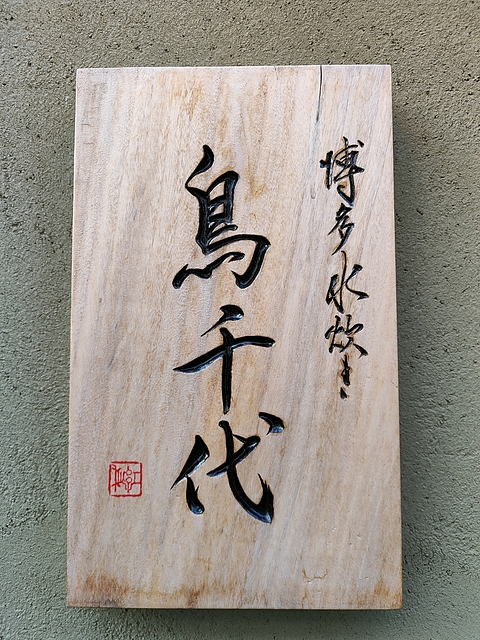 博多水炊き
鳥千代